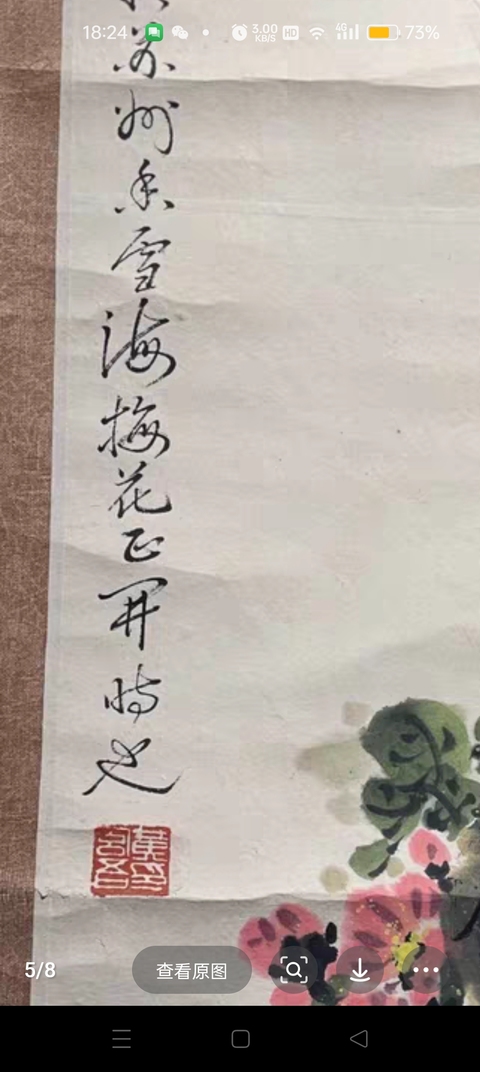 18:24
3.00
KB/S
HD
4G
73%
苏州香雪海梅花正开时也
5/8
查看原图